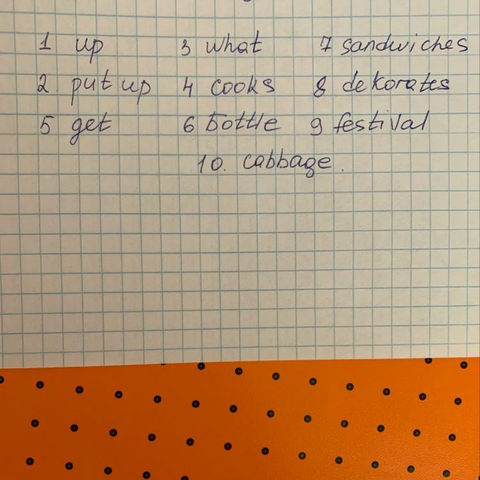 1 up 3 what 7 sandwiches
2 put up 4 cooks 8 dekorates
5 get 6 bottle 9 festival
10. cabbage.